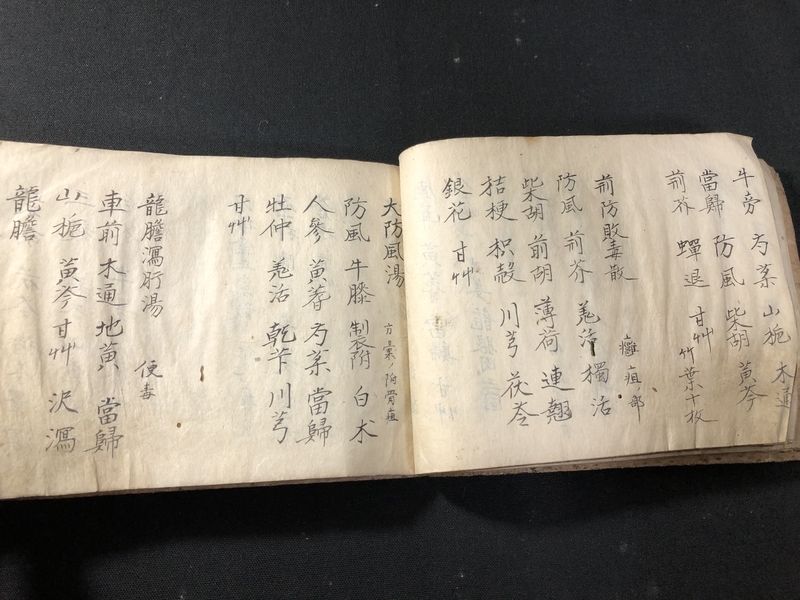 牛旁 芍薬 山梔 木通
當歸 防風 柴胡 黄芩
荊芥 蟬退 甘艸 竹葉十枚
荊防敗毒散 癰疽ノ部
防風 荊芥 羗活 獨活
柴胡 前胡 薄荷 連翹
桔梗 枳殻 川芎 茯苓
銀花 甘艸
大防風湯 附骨疽
防風 牛膝 製附 白朮
人參 黄蓍 芍薬 當歸
牡仲 羗活 乾芐 川芎
甘艸
龍膽瀉肝湯 便毒
車前 木通 地黄 當歸
山梔 黄芩 甘艸 沢瀉
龍膽